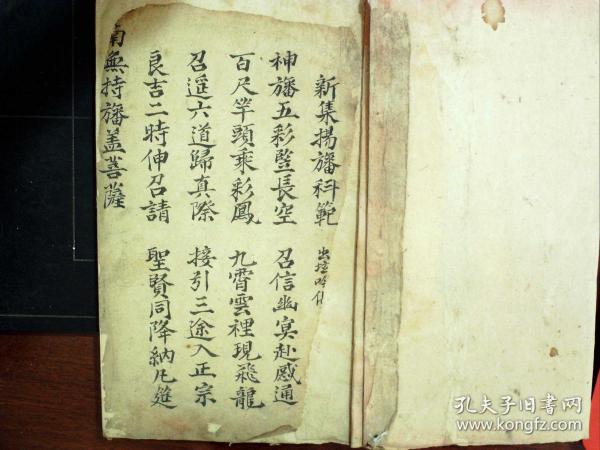 新集揚旛科範 出壇吟
神旛五彩豎長空 召信幽冥赴感通
百尺竿頭乘彩鳳 九霄雲裡現飛龍
召遥六道歸真際 接引三途入正宗
良吉二時伸召請 聖賢同降納凡筵
南無持旛盖菩薩
孔夫子旧书网
www.kongfz.com